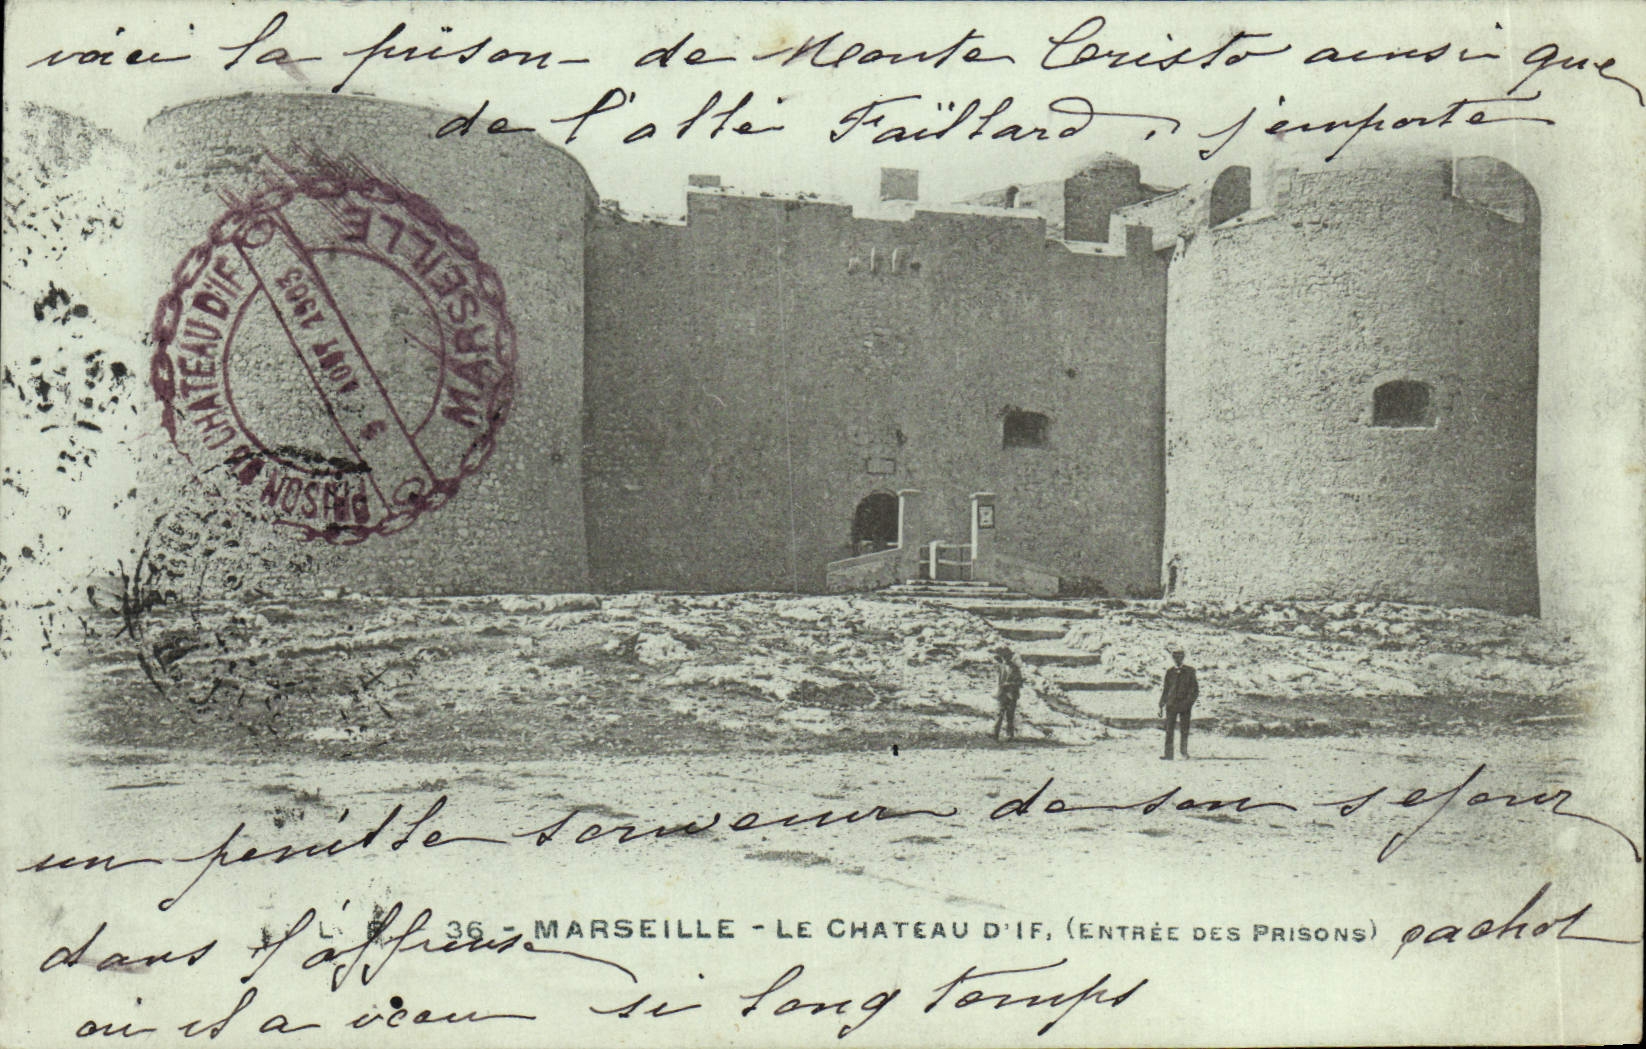 voici la prison de Monte Cristo ainsi que
de l'abbé Faïllard. j'emporte
MARSEILLE
PRISON DU CHATEAU D'IF
AOUT 1903
un penible souvenir de son sejour
36. - MARSEILLE - LE CHATEAU D'IF, (ENTRÉE DES PRISONS)
dans l'affreuse cachot
ou il a vecu si long temps